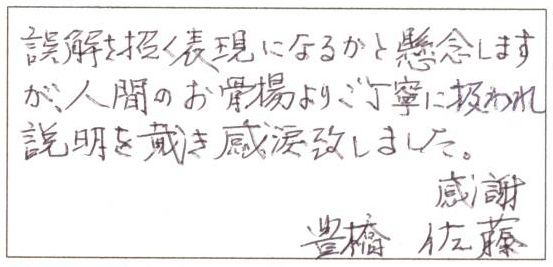 誤解を招く表現になるかと懸念します
が、人間のお骨場よりご丁寧に扱われ
説明を戴き感涙致しました。
感謝
豊橋 佐藤